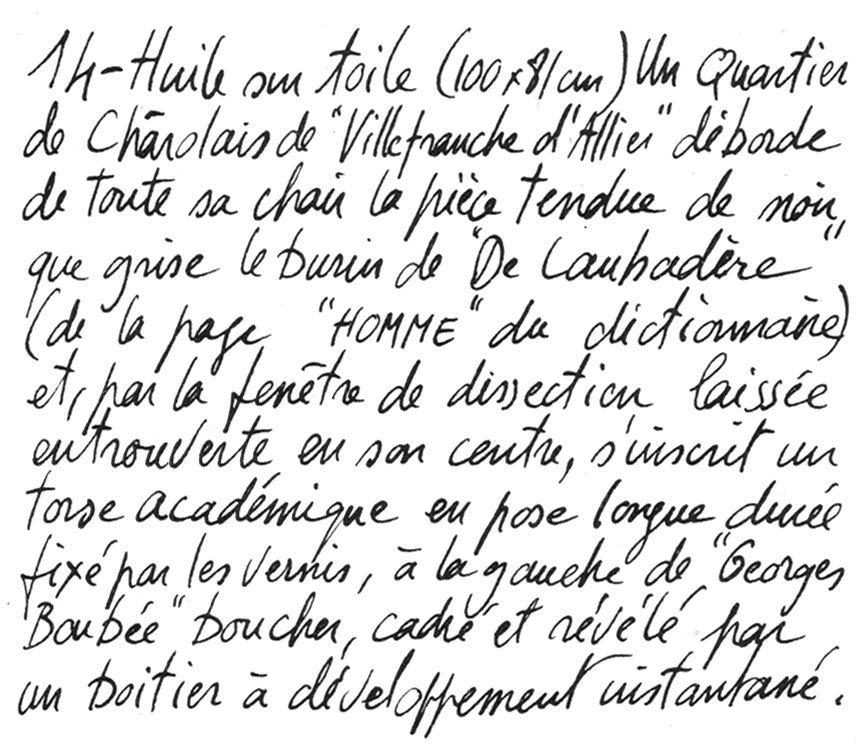 14-Huile sur toile (100x81cm) Un Quartier
de Chârolais de "Villefranche d'Allier" déborde
de toute sa chair la pièce tendue de noir,
que grise le burin de "De Laubadère"
(de la page "HOMME" du dictionnaire)
et, par la fenêtre de dissection laissée
entrouverte en son centre, s'inscrit un
torse académique en pose longue durée
fixé par les vernis, à la gauche de "Georges
Boubée" boucher, cadré et révélé par
un boitier à développement instantané.